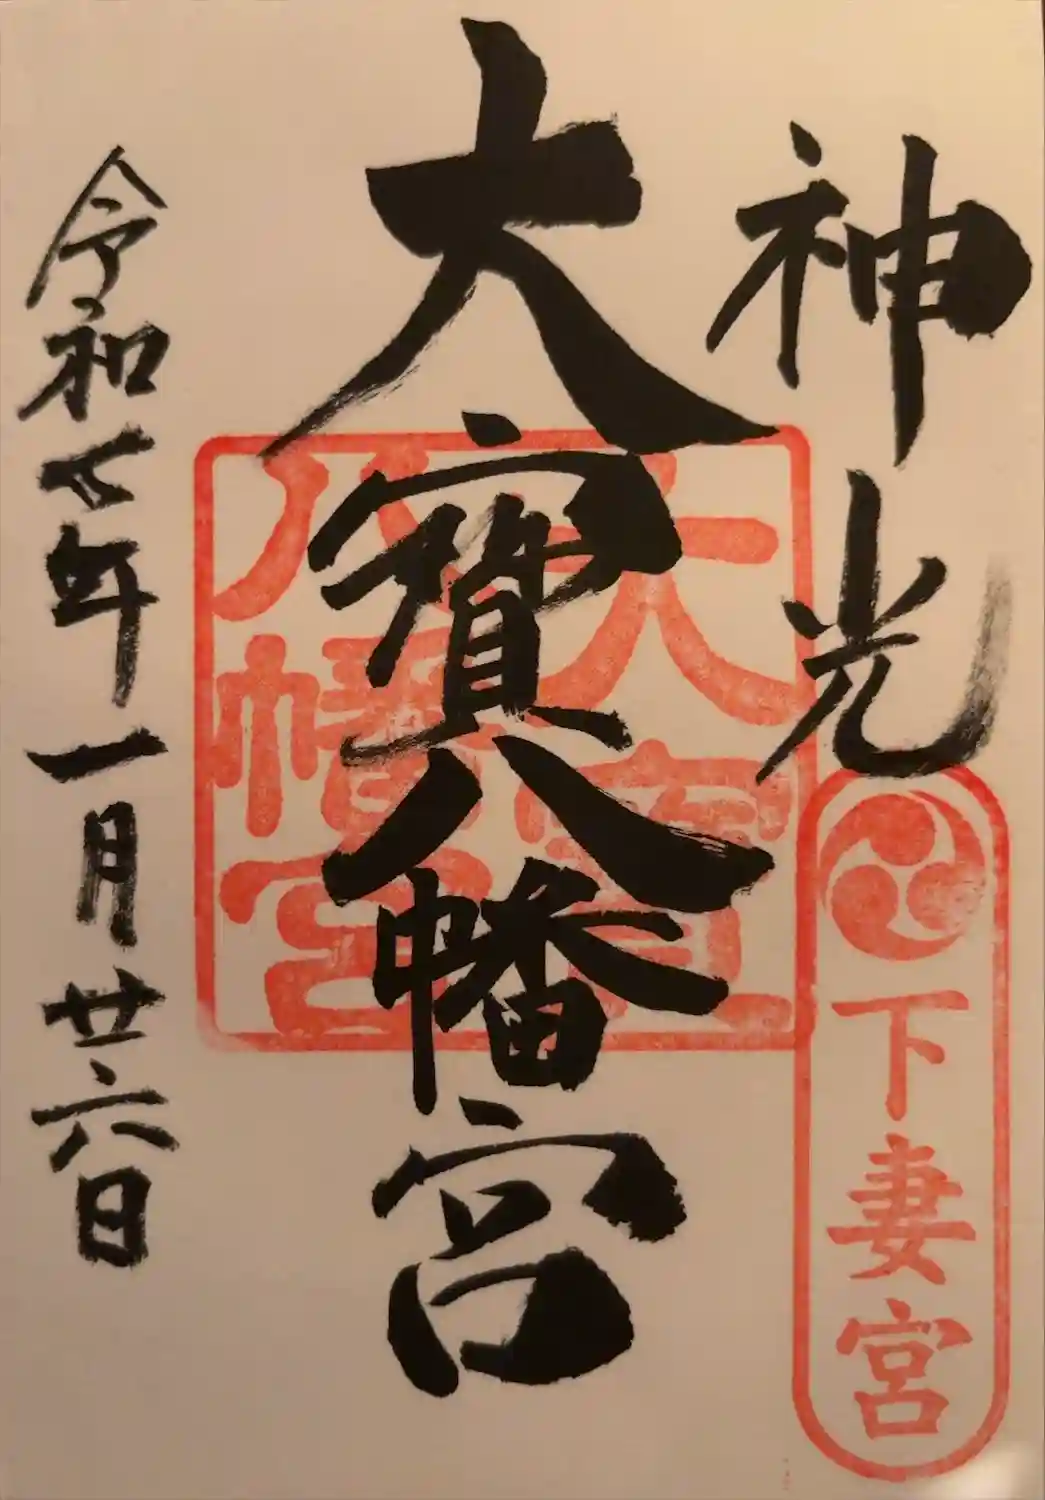 神光
下妻宮
大寳八幡宮
大寳
八幡宮
令和七年一月廿六日